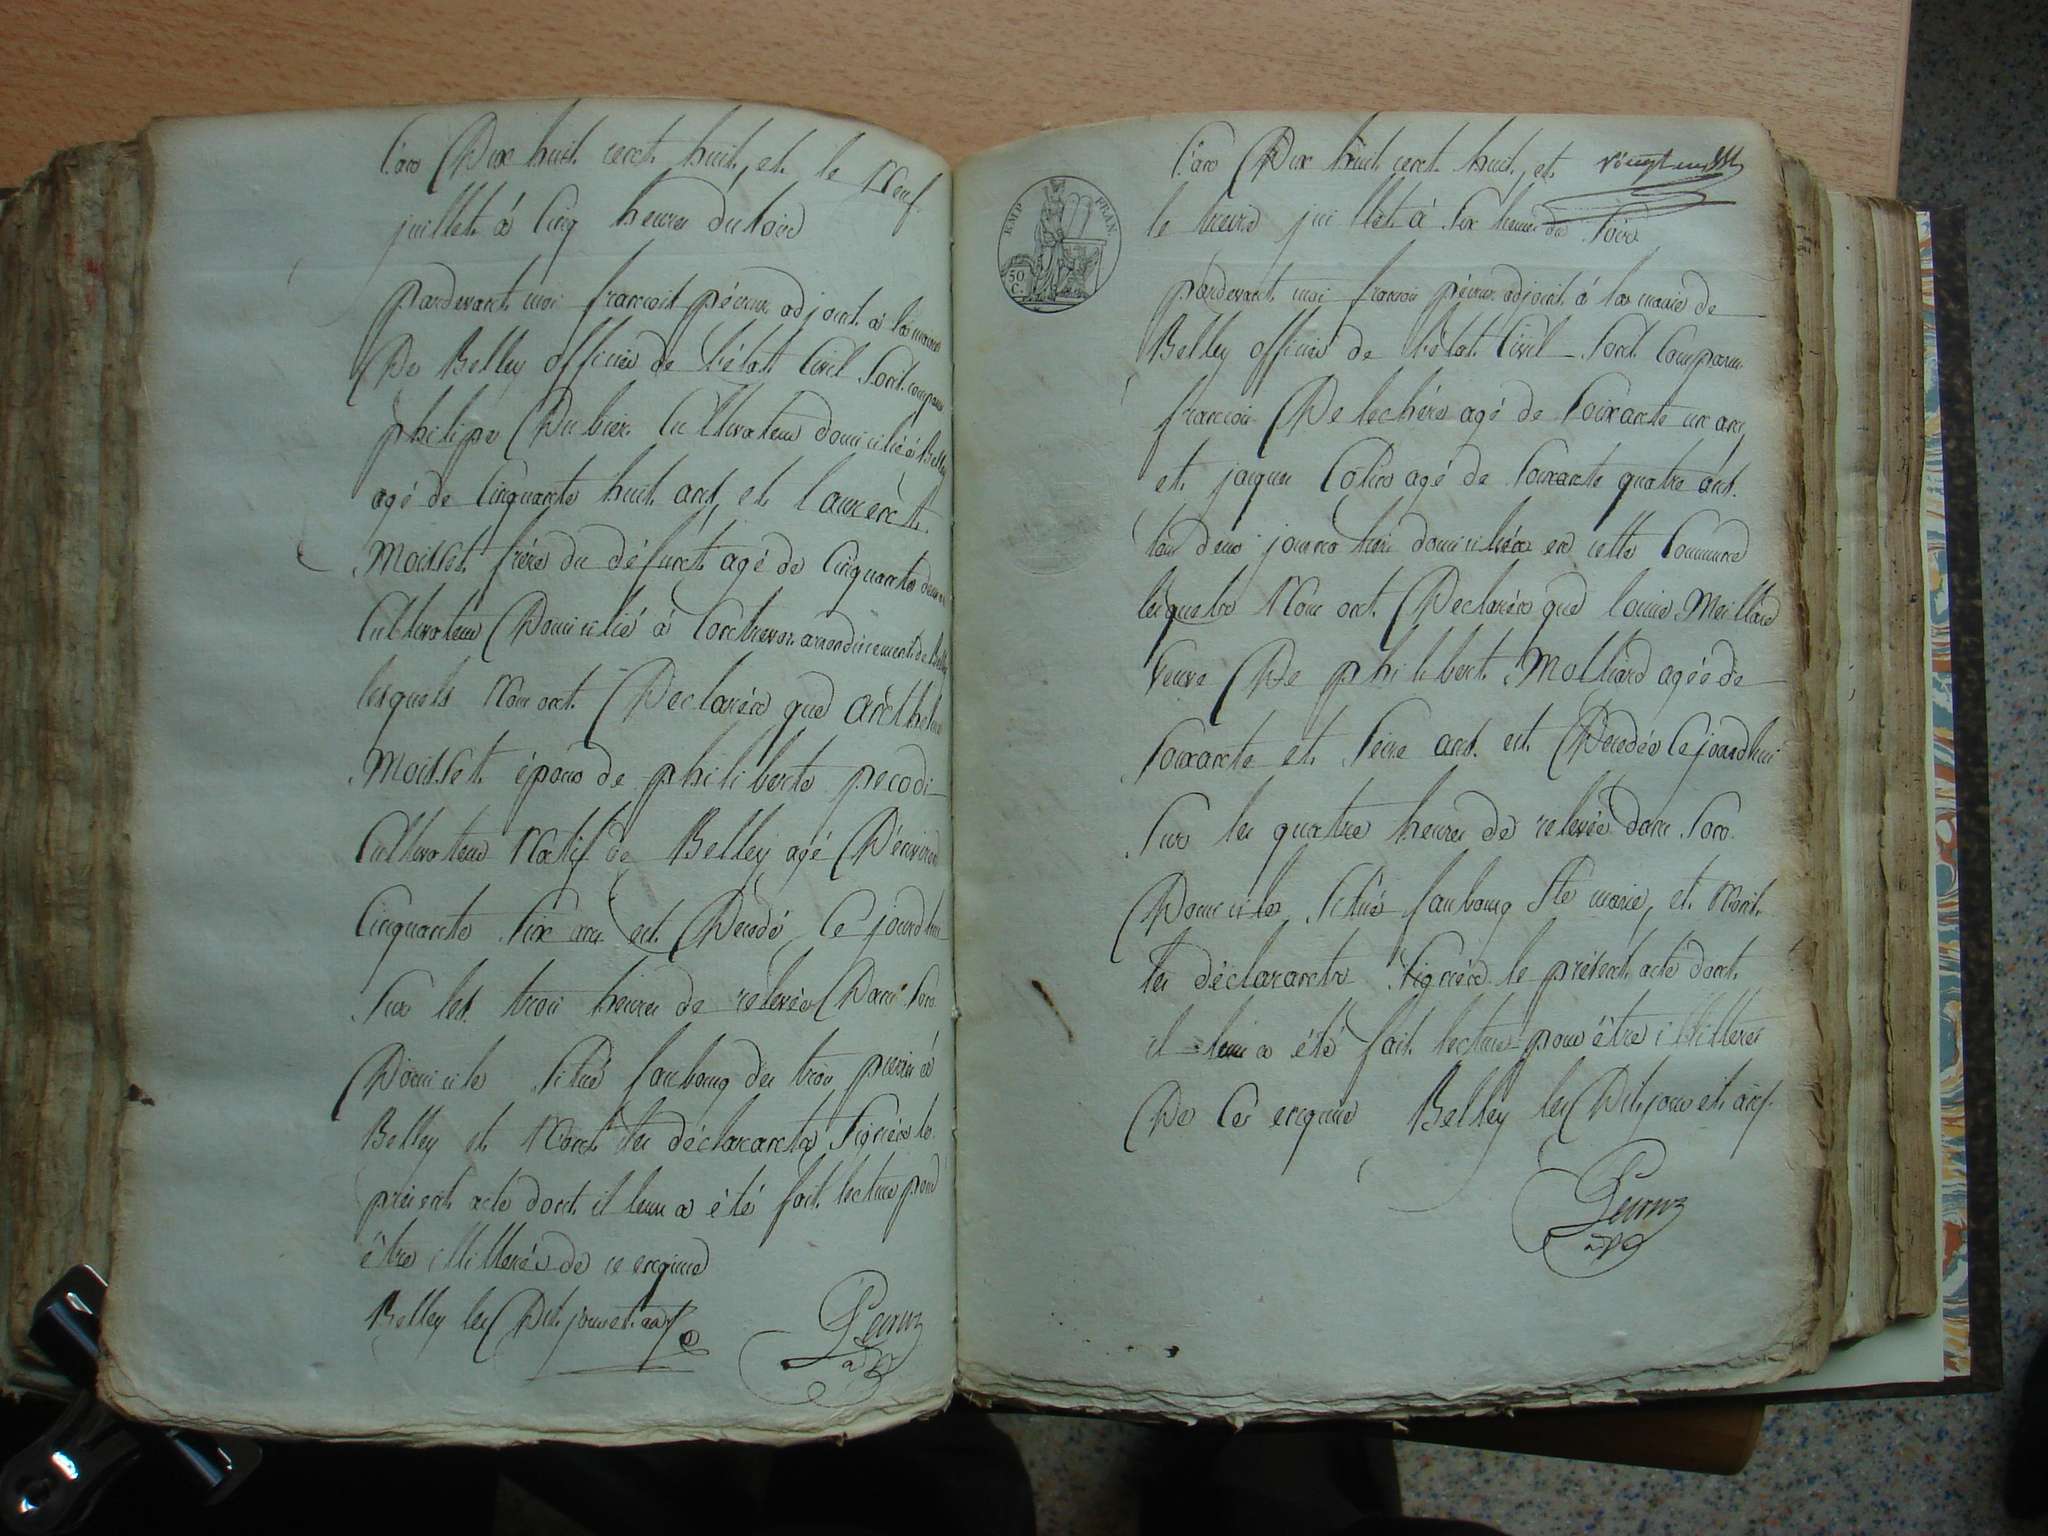 L'an Dix huit cent huit, et le Neuf
juillet à Cinq heures du soir
pardevant moi françois péreux adjoint à la mairie
De Belley officier de l'état Civil sont comparu
philipe Dubier Cultivateur domicilié à Belley
agé de Cinquante huit ans, et laurent
Moisset frère du défunct agé de Cinquante deux
Cultivateur Domicilié à Contrevoz arrondissement de Belley
lesquels Nous ont Declarés que anthelme
Moisset époux de philiberte pecodi
Cultivateur Natif de Belley agé D'environ
Cinquante six ans est Decedé Ce jourd'hui
sur les trois heures de relevée Dans son
Domicile situé faubourg des trois à
Belley et N'ont les déclarants signés le
présent acte dont il leur a été fait lecture pour
être illitterés de ce enquis
Belley les Dit jour et an
Peureux
adj
L'an Dix huit cent huit, et
vingt
le treize juillet à six heures du soir
EMP. FRAN.
50 C.
pardevant moi françois péreux adjoint à la mairie de
Belley officier de l'état Civil sont Comparu
françois De lechère agé de soixante un ans
et jacques Colin agé de soixante quatre ans
tous deux domiciliés en cette Commune
lesquels Nous ont Declarés que louise Meilland
Veuve De philibert Molliard agée de
soixante et seize ans est Decedée Ce jourd'hui
sur les quatre heures de relevée dans son
Domicile situé faubourg Ste marie, et N'ont
les déclarants signés le présent acte dont
il leur a été fait lecture pour être illitterés
De Ce enquis Belley les Dit jour et an
Peureux
adj